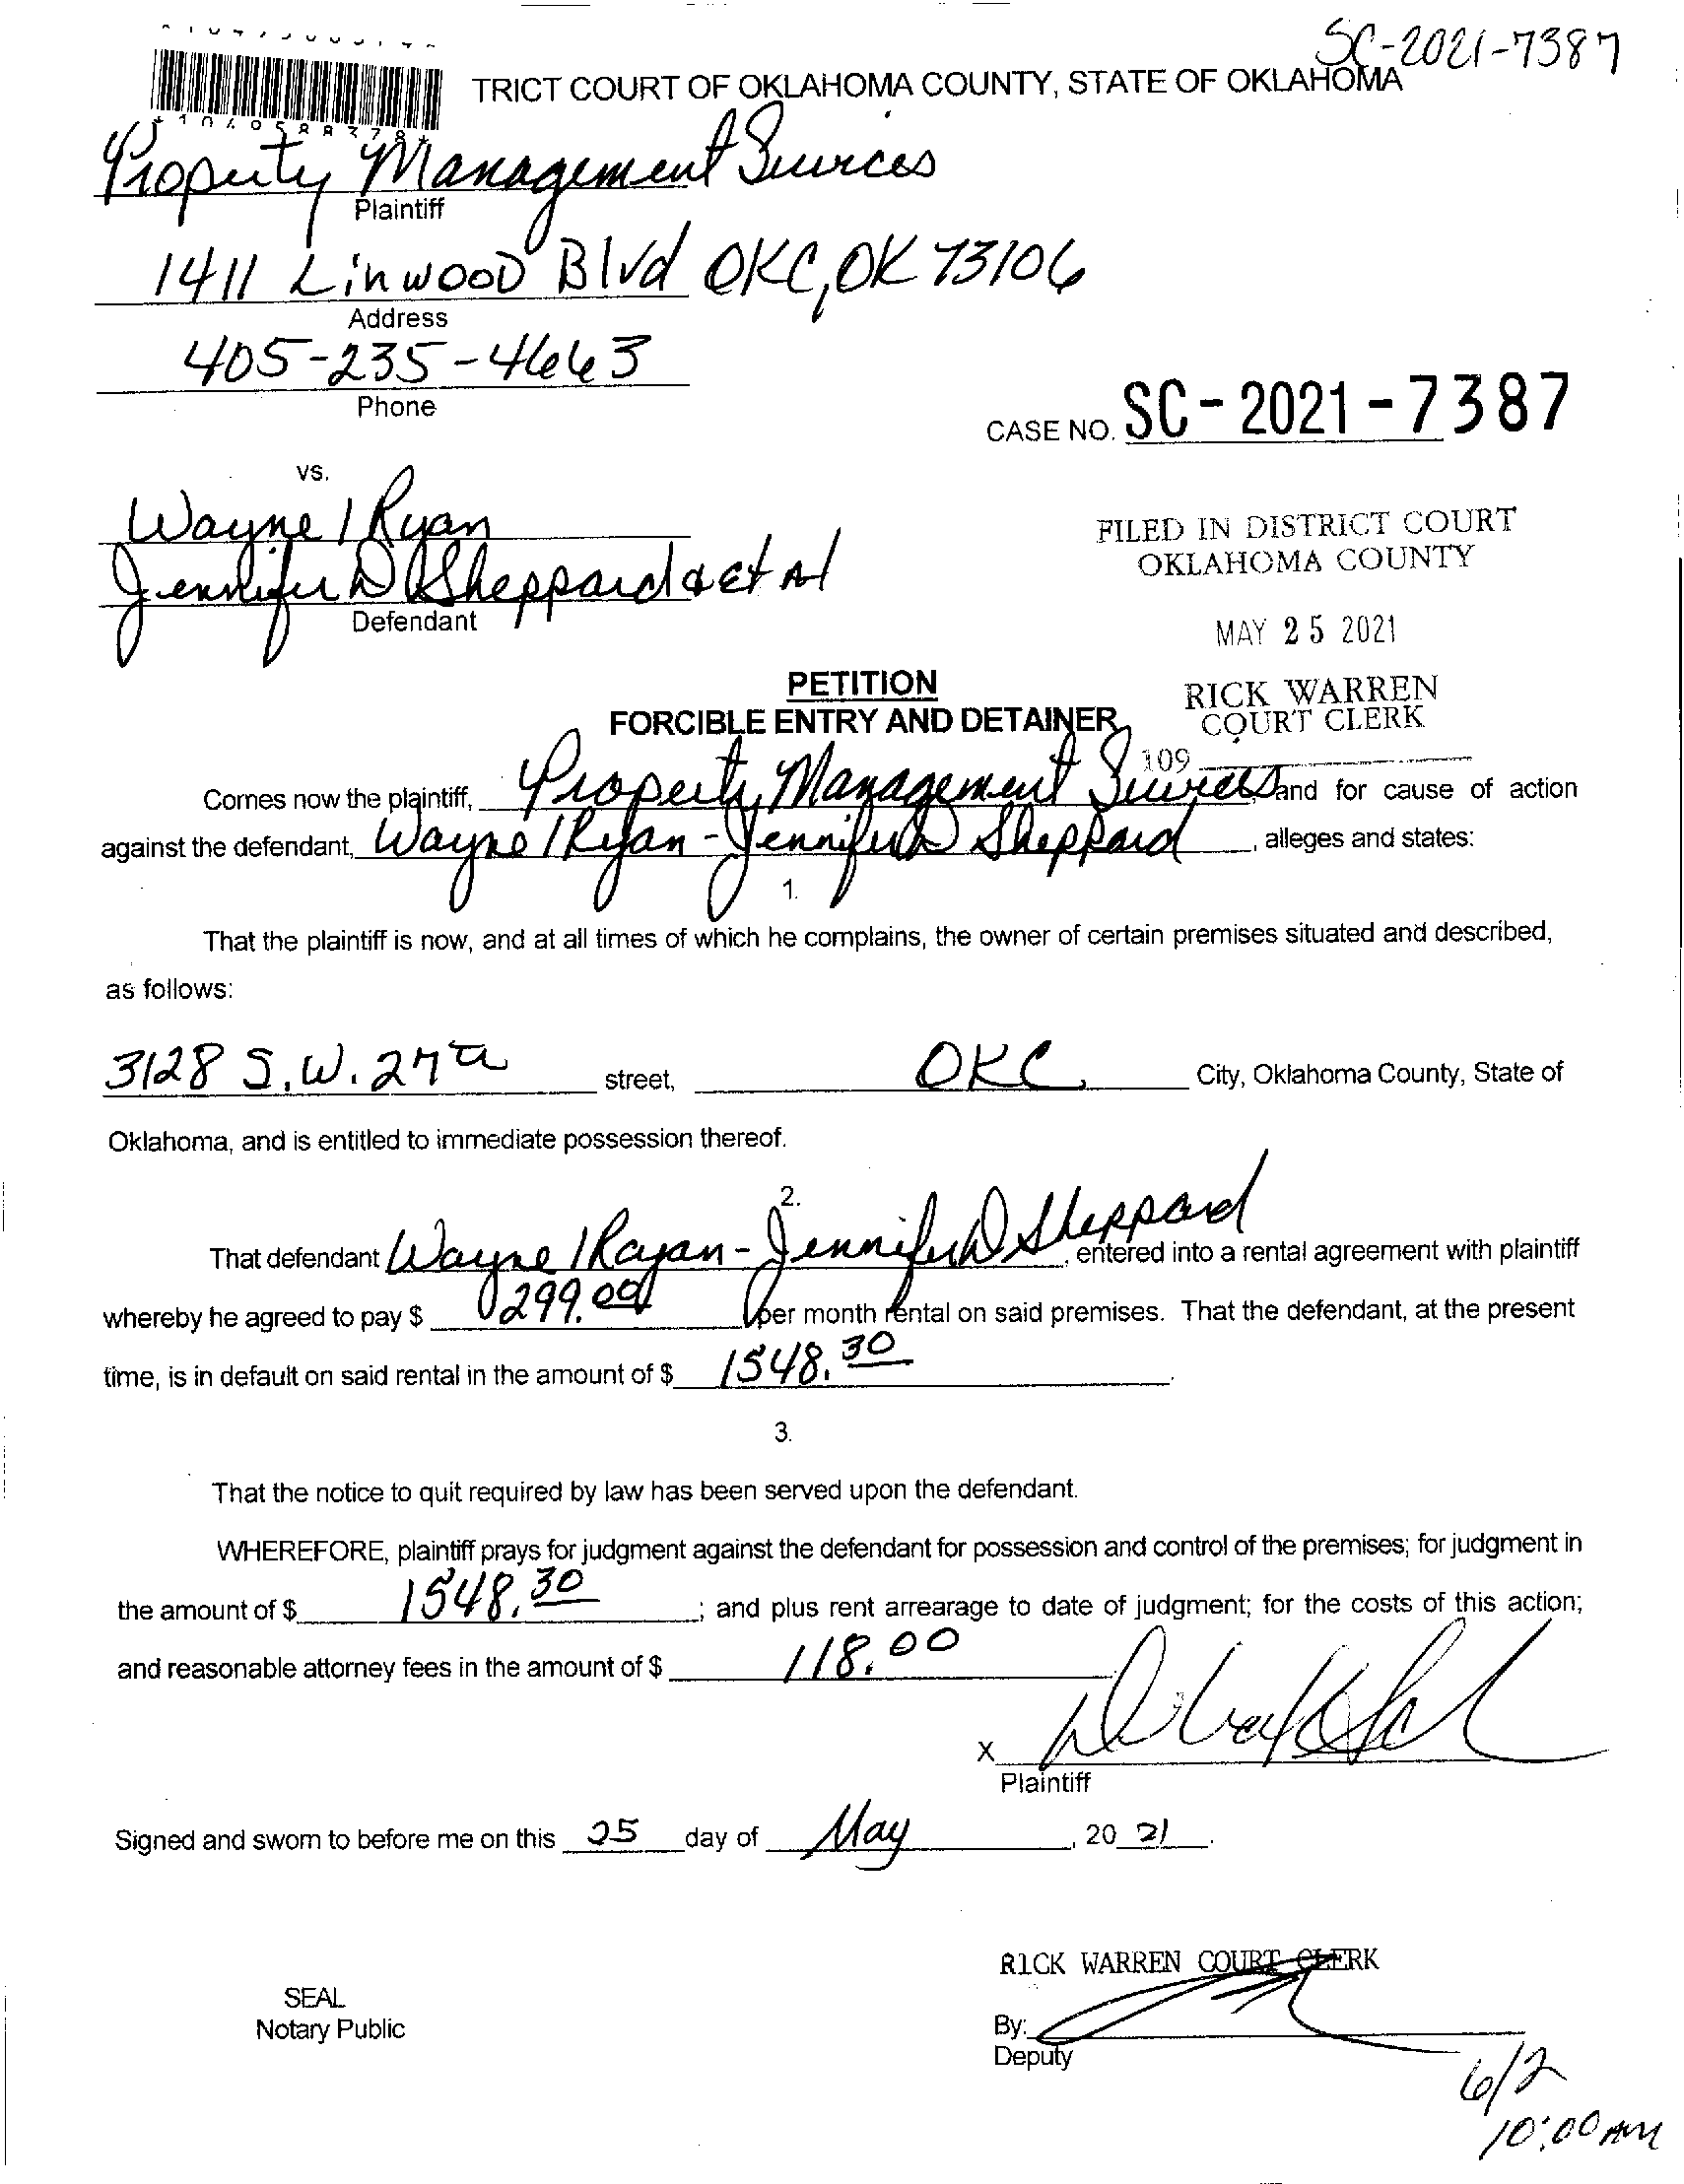 SC-2021-7387
TRICT COURT OF OKLAHOMA COUNTY, STATE OF OKLAHOMA
Property Management Services
Plaintiff
1411 Linwood Blvd OKC, OK 73106
Address
405-235-4663
Phone
CASE NO. SC-2021-7387
vs.
Wayne I Ryan
Jennifer D Sheppard & et Al
Defendant
FILED IN DISTRICT COURT
OKLAHOMA COUNTY
MAY 25 2021
RICK WARREN
COURT CLERK
109
PETITION
FORCIBLE ENTRY AND DETAINER
Comes now the plaintiff, Property Management Services and for cause of action
against the defendant, Wayne I Ryan - Jennifer D Sheppard, alleges and states:
1.
That the plaintiff is now, and at all times of which he complains, the owner of certain premises situated and described,
as follows:
3128 S.W. 27th street, OKC City, Oklahoma County, State of
Oklahoma, and is entitled to immediate possession thereof.
2.
That defendant Wayne I Rayan - Jennifer D Sheppard, entered into a rental agreement with plaintiff
whereby he agreed to pay $ 299.00 per month rental on said premises. That the defendant, at the present
time, is in default on said rental in the amount of $ 1548.30.
3.
That the notice to quit required by law has been served upon the defendant.
WHEREFORE, plaintiff prays for judgment against the defendant for possession and control of the premises; for judgment in
the amount of $ 1548.30; and plus rent arrearage to date of judgment; for the costs of this action;
and reasonable attorney fees in the amount of $ 118.00
X
Plaintiff
Signed and sworn to before me on this 25 day of May, 20 21.
RICK WARREN COURT CLERK
SEAL
Notary Public
By:
Deputy
6/2
10:00 AM